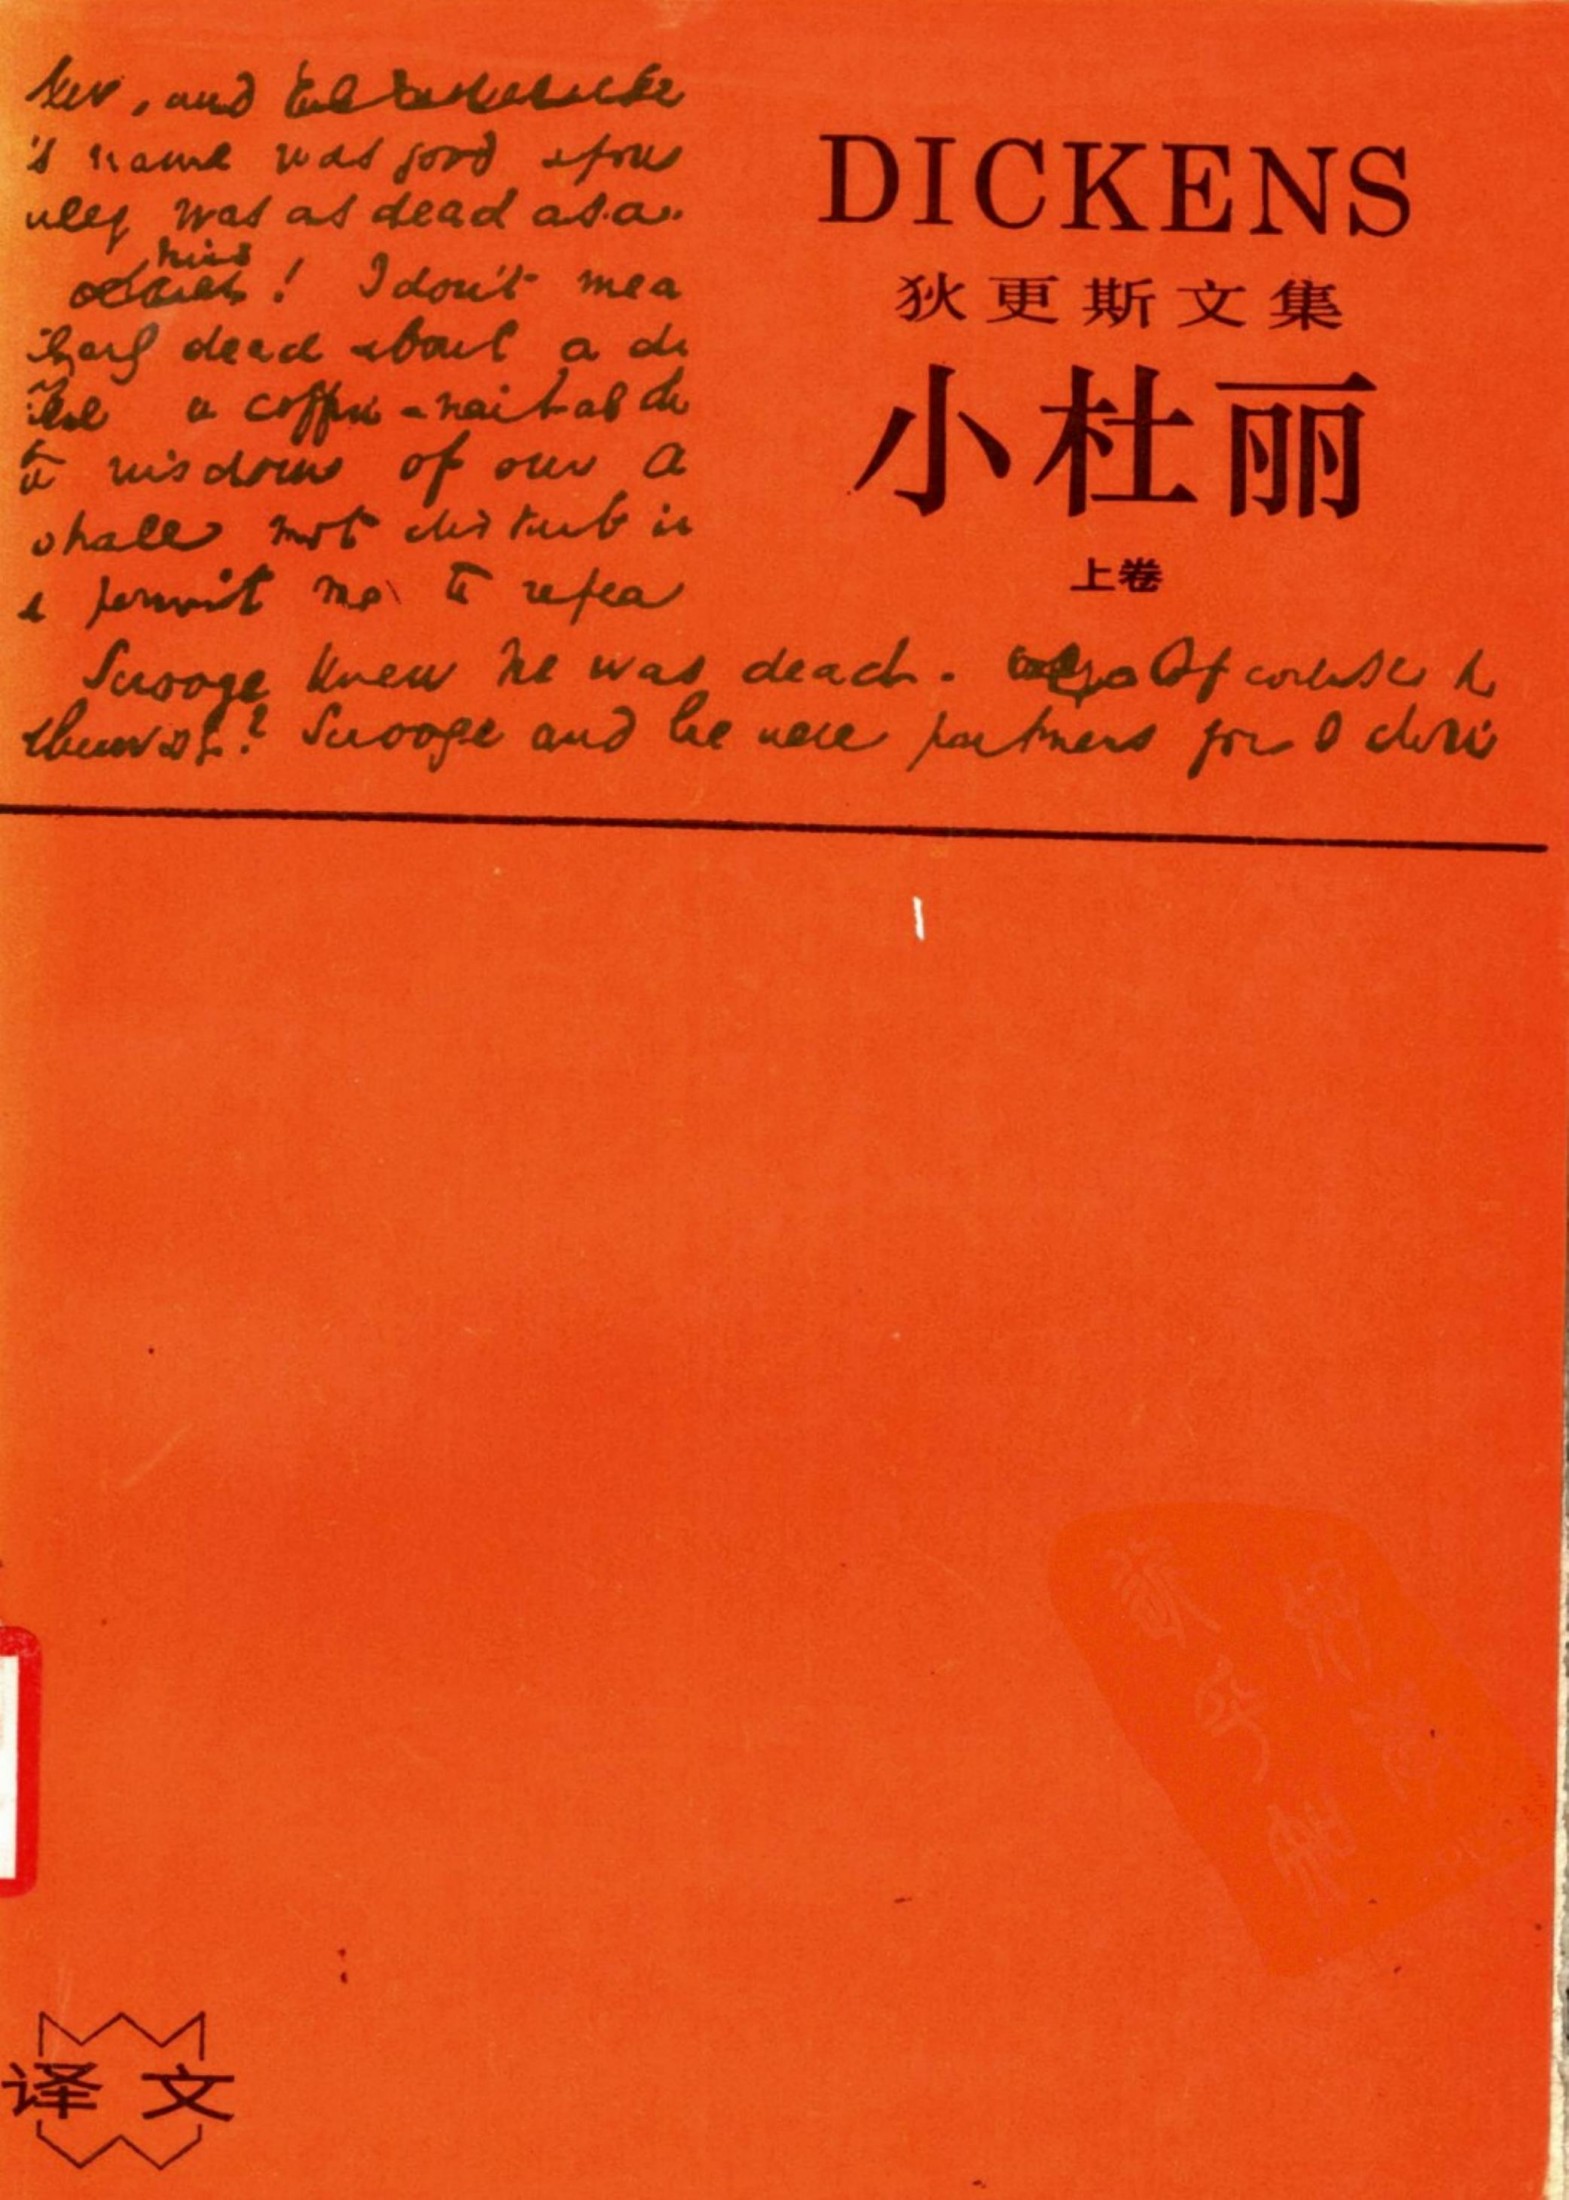 , and
's name was good upon
was as dead as a
his
! I don't mea
dead about a
a coffin-nail as
wisdom of our a
shall not disturb
permit me to repea
Scrooge knew he was dead. Of course h
? Scrooge and he were partners for I
DICKENS
狄更斯文集
小杜丽
上卷
译文